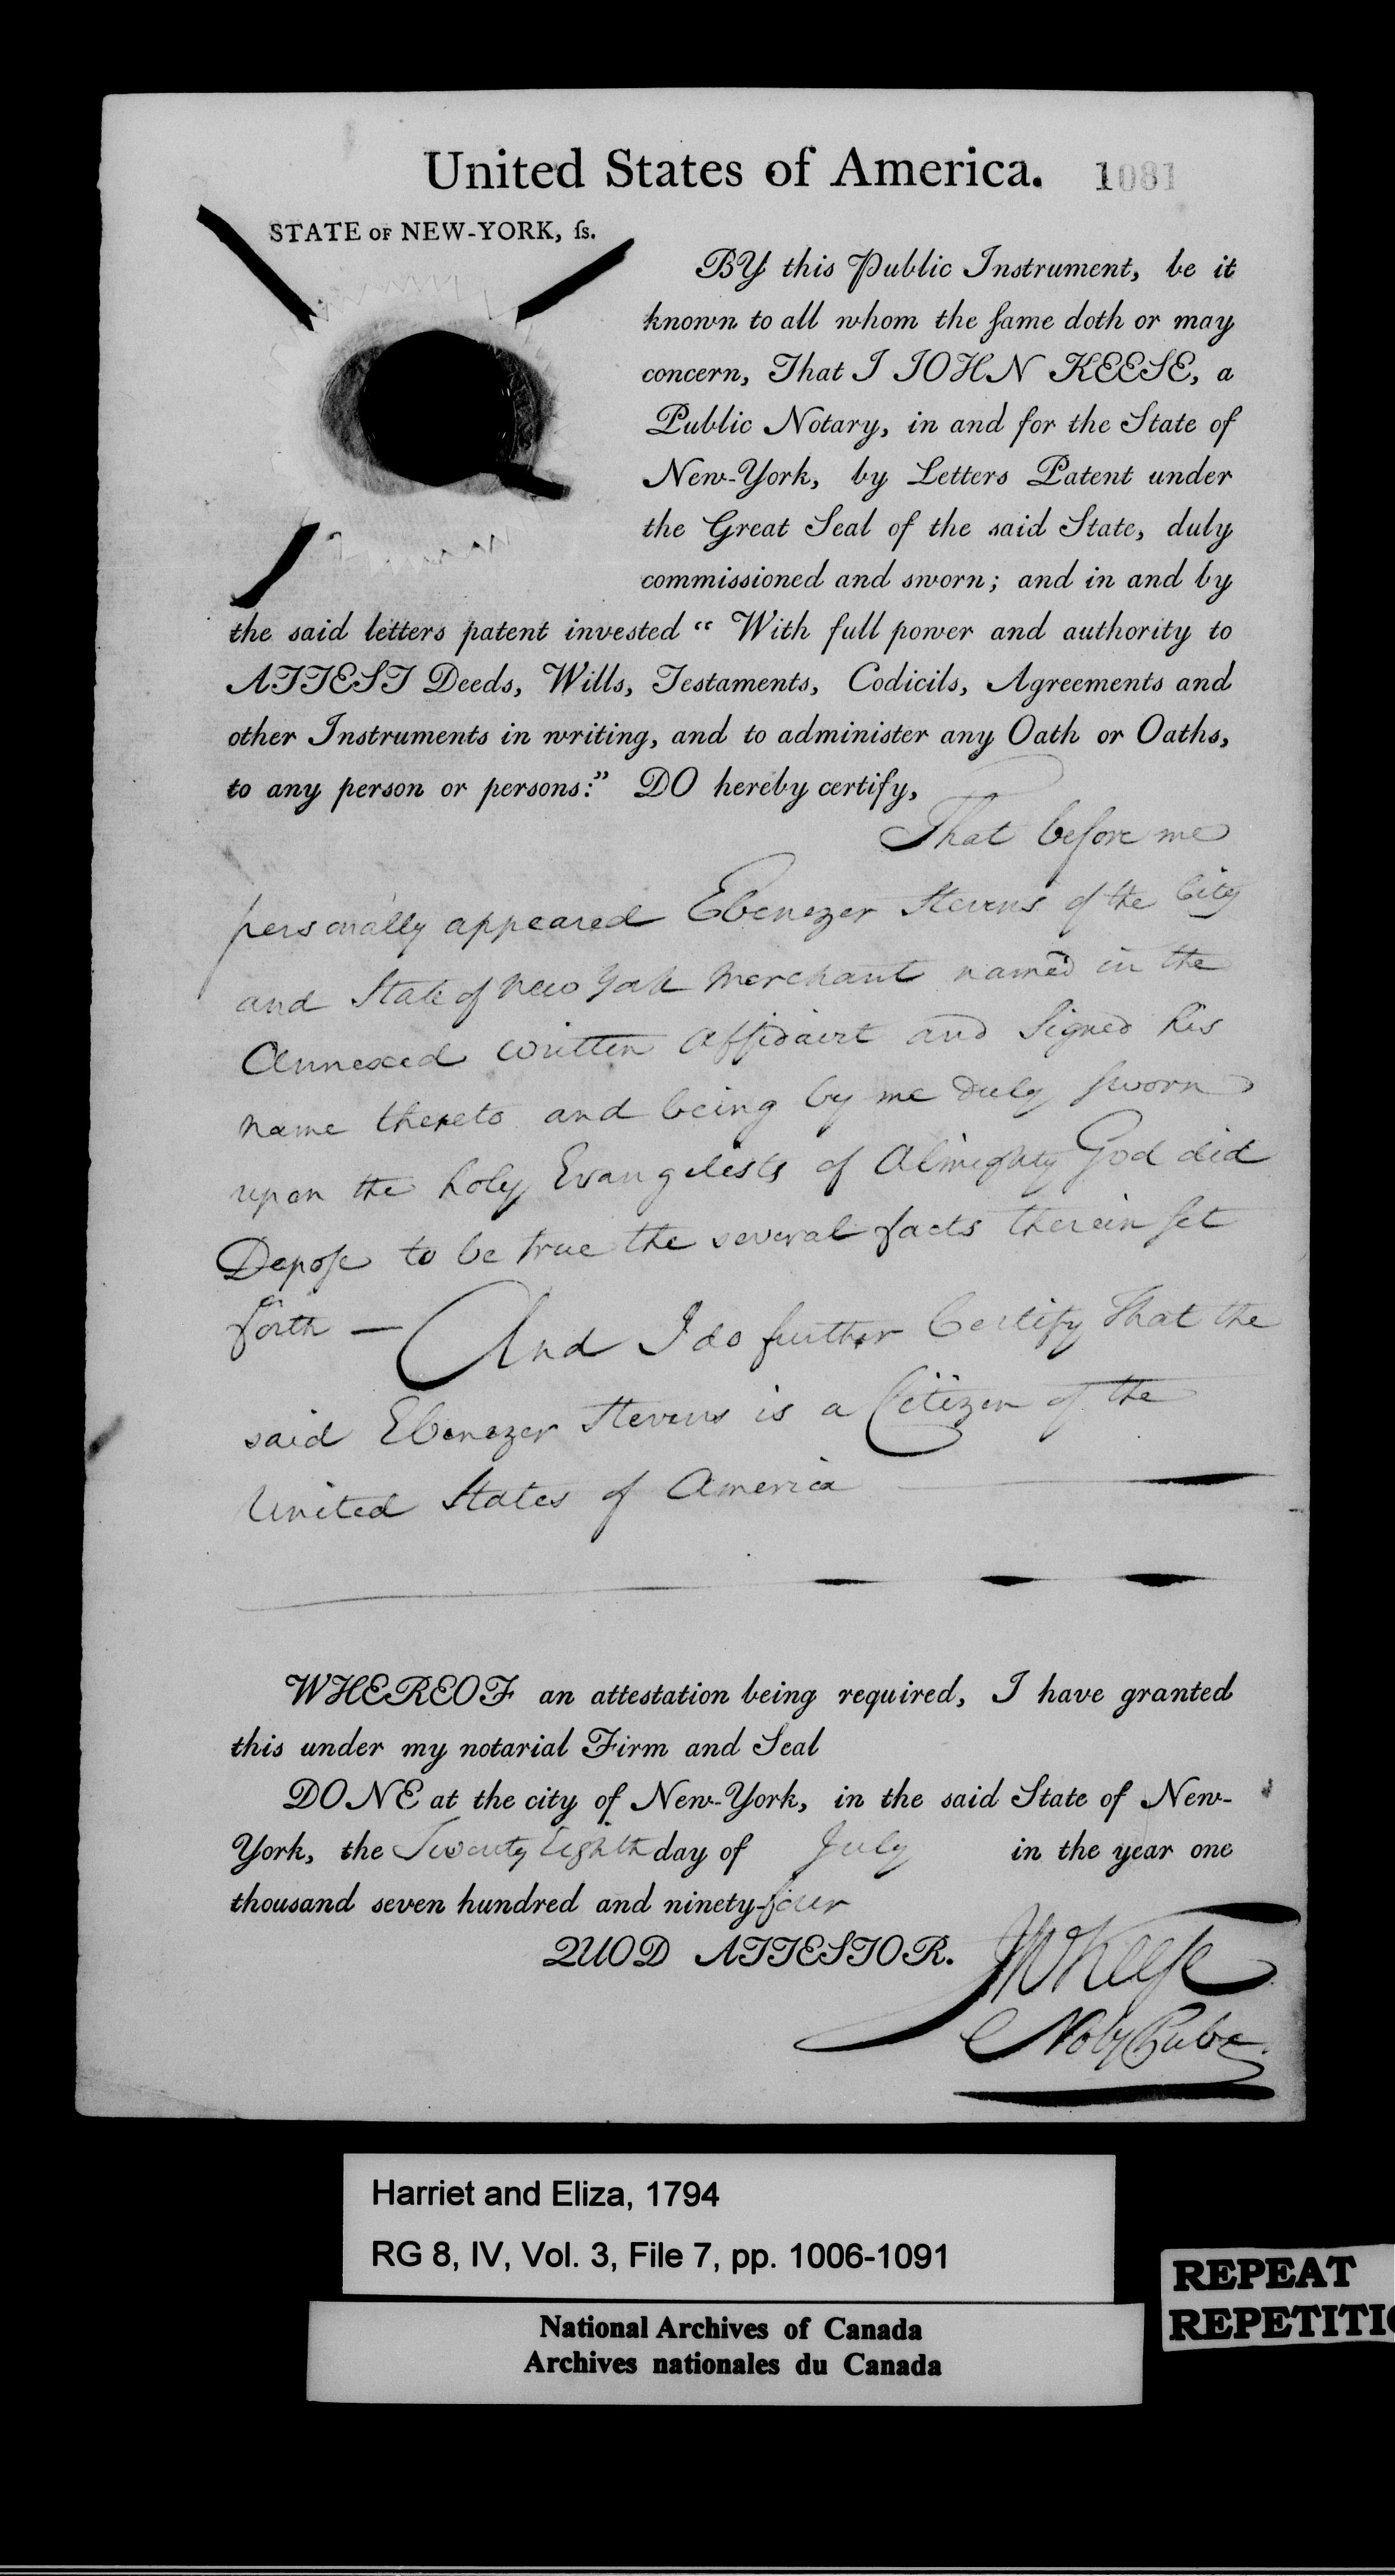 United States of America. 1081
STATE OF NEW-YORK, ſs.
BY this Public Instrument, be it
known to all whom the ſame doth or may
concern, That I IOHN KEESE, a
Public Notary, in and for the State of
New-York, by Letters Patent under
the Great Seal of the said State, duly
commissioned and sworn; and in and by
the said letters patent invested “ With full power and authority to
ATTEST Deeds, Wills, Testaments, Codicils, Agreements and
other Instruments in writing, and to administer any Oath or Oaths,
to any person or persons:” DO hereby certify,
That before me
personally appeared Ebenezer Stevens of the City
and State of New York Merchant named in the
Annexed written Affidavit and Signed his
name thereto and being by me duly sworn
upon the holy Evangelists of Almighty God did
Depoſe to be true the several facts therein ſet
forth — And I do further Certify That the
said Ebenezer Stevens is a Citizen of the
United States of America
WHEREOF an attestation being required, I have granted
this under my notarial Firm and Seal
DONE at the city of New-York, in the said State of New-
York, the Twenty Eighth day of July in the year one
thousand seven hundred and ninety-four
QUOD ATTESTOR. JnO Keeſe
Noty Pubc
Harriet and Eliza, 1794
RG 8, IV, Vol. 3, File 7, pp. 1006-1091
National Archives of Canada
Archives nationales du Canada
REPEAT
REPETITIO